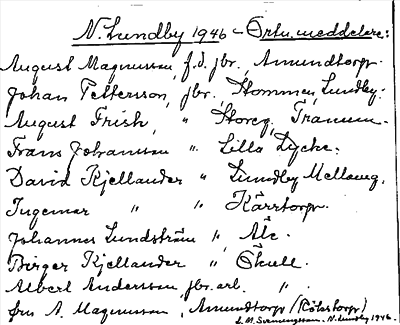 N. Lundby 1946 - Ortn. meddelare:
August Magnusson, f.d. jbr, Amundtorp.
Johan Pettersson, jbr, Stommen, Lundby.
August Frisk, " Storeg, Tranum.
Frans Johansson " Lilla Lycke.
David Kjellander " Lundby Mellomg.
Ingemar " " Kärrtorp.
Johannes Lundström " Åle.
Birger Kjellander " Ökull.
Albert Andersson, jbr. arb. "
fru A. Magnusson, Amundtorp (Rölstorp)
S. M. Svenungsson. N. Lundby 1946.